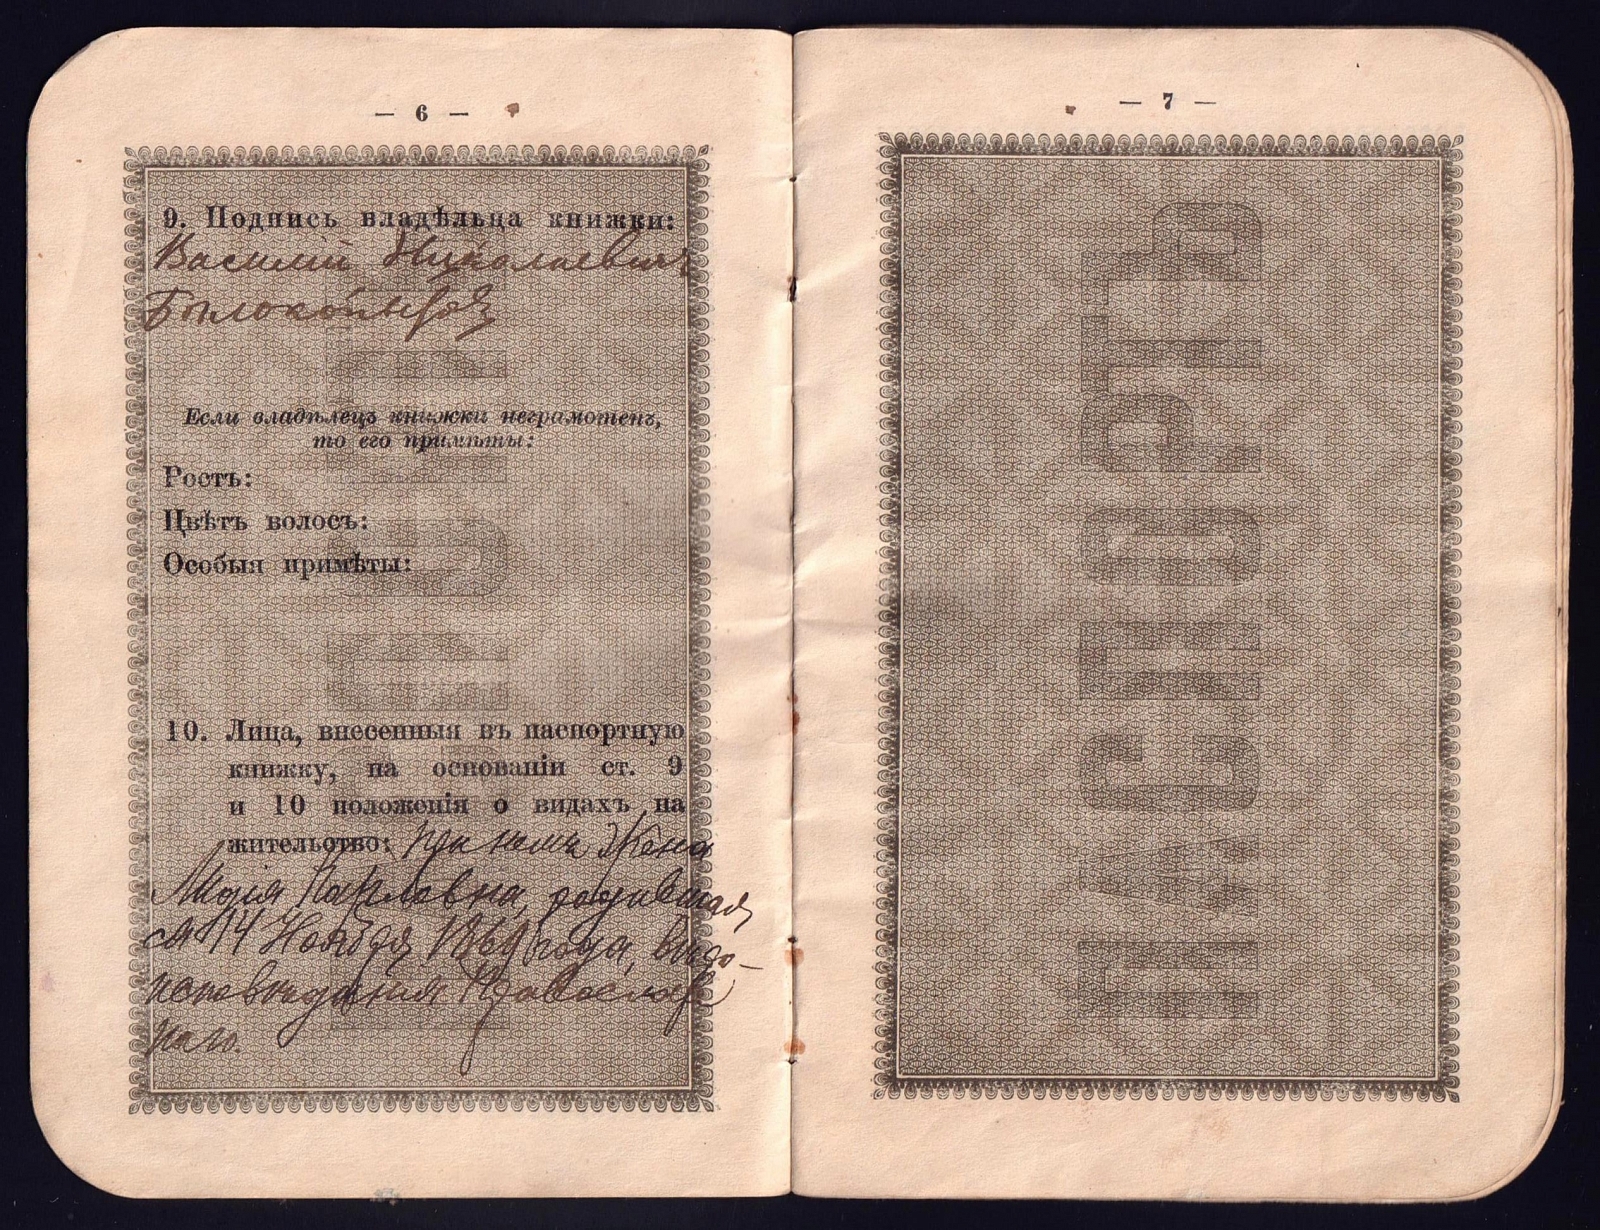 — 6 —
9. Подпись владѣльца книжки:
Василий Николаевич
Если владѣлецъ книжки неграмотенъ,
то его примѣты:
Ростъ:
Цвѣтъ волосъ:
Особыя примѣты:
10. Лица, внесенныя въ паспортную
книжку, на основаніи ст. 9
и 10 положенія о видахъ на
жительство: При немъ Жена
Марія Павловна, родившая
ся 14 Ноября 1869 года, вѣро-
исповѣданія Православ
наго.
— 7 —
ПАСПОРТЪ